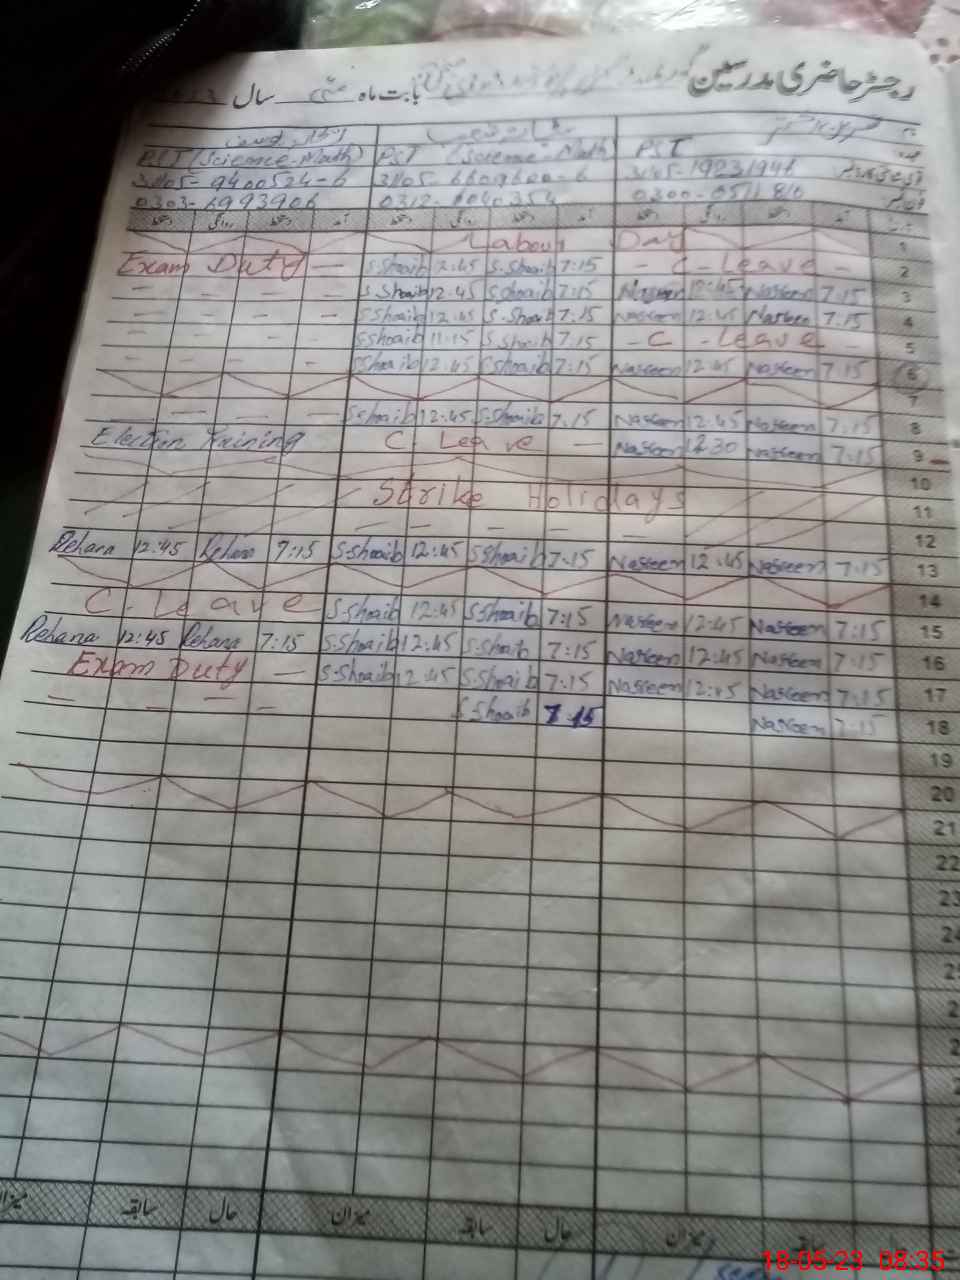 رجسٹر حاضری مدرسین بابت ماہ مئی سال
PST (Science-Math) PST (Science-Math) PST
31105-9400524-6 31105-6609600-6
0303-6993906 0312- 0300-0511810
Labour Day 1
Exam Duty — S.Shoaib 12:45 S.Shoaib 7:15 - C - Leave - 2
— — — — S.Shoaib 12:45 S.Shoaib 7:15 Nasreen 12:45 Nasreen 7:15 3
— — — — S.Shoaib 12:45 S.Shoaib 7:15 Nasreen 12:45 Nasreen 7:15 4
— — — — S.Shoaib 11:15 S.Shoaib 7:15 - C - Leave - 5
— — — - S.Shoaib 12:45 S.Shoaib 7:15 Nasreen 12:45 Nasreen 7:15 6
7
— — — S.Shoaib 12:45 S.Shoaib 7:15 Nasreen 12:45 Nasreen 7:15 8
Election Training C - Leave — Nasreen 12:30 Nasreen 7:15 9
10
Strike Holidays 11
— — — — 12
Rehana 12:45 Rehana 7:15 S.Shoaib 12:45 S.Shoaib 7:15 Nasreen 12:45 Nasreen 7:15 13
14
C - Leave S.Shoaib 12:45 S.Shoaib 7:15 Nasreen 12:45 Nasreen 7:15 15
Rehana 12:45 Rehana 7:15 S.Shoaib 12:45 S.Shoaib 7:15 Nasreen 12:45 Nasreen 7:15 16
Exam Duty — S.Shoaib 12:45 S.Shoaib 7:15 Nasreen 12:45 Nasreen 7:15 17
— — — — S.Shoaib 7:15 Nasreen 7:15 18
19
20
21
22
23
میزان حال سابقہ میزان حال سابقہ
18-05-23 08:35